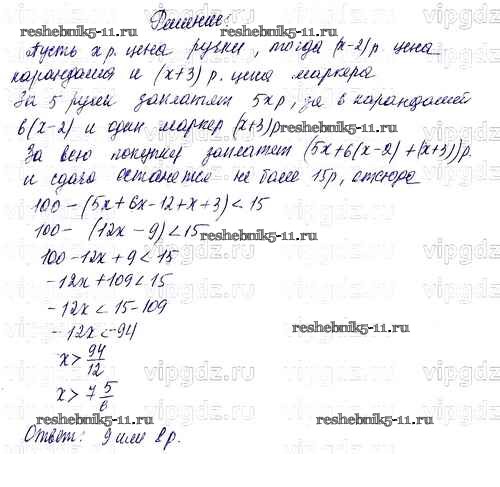 Решение:
Пусть x р. цена ручки, тогда (x-2) р. цена
карандаша и (x+3) р. цена маркера
За 5 ручек заплатят 5x р, за 6 карандашей
6(x-2) и один маркер (x+3)р
За всю покупку заплатят (5x+6(x-2)+(x+3))р.
и сдача останется не более 15р, отсюда
100-(5x+6x-12+x+3)<15
100- (12x-9)<15
100-12x+9<15
-12x+109<15
-12x<15-109
-12x<-94
x> 94/12
x> 7 5/6
Ответ: 9 или 8 р.
reshebnik5-11.ru.
reshebnik5-11.ru.
reshebnik5-11.ru.
reshebnik5-11.ru.
reshebnik5-11.ru.
reshebnik5-11.ru.
vipgdz.ru
vipgdz.ru
vipgdz.ru
vipgdz.ru